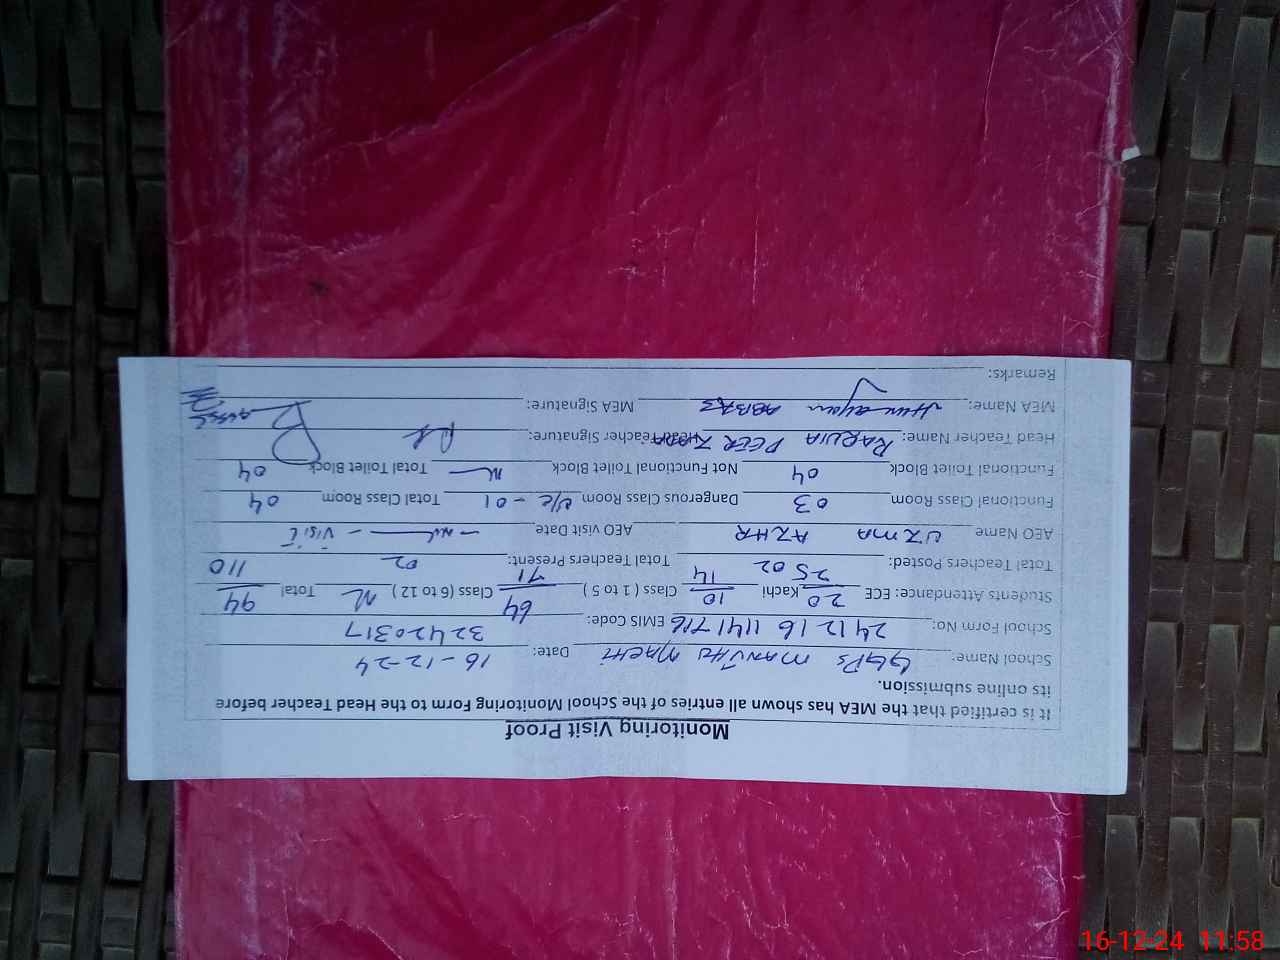 Monitoring Visit Proof
It is certified that the MEA has shown all entries of the School Monitoring Form to the Head Teacher before
its online submission.
School Name: GGPS MANJHU MACHI Date: 16-12-24
School Form No: 241216 1141716 EMIS Code: 32420317
Students Attendance: ECE 20/25 Kachi 10/14 Class ( 1 to 5 ) 64/71 Class (6 to 12 ) NL Total 94/110
Total Teachers Posted: 02 Total Teachers Present: 02
AEO Name UZMA AZHR AEO visit Date - NIL - Visit
Functional Class Room 03 Dangerous Class Room U/C - 01 Total Class Room 04
Functional Toilet Block 04 Not Functional Toilet Block NL Total Toilet Block 04
Head Teacher Name: RAQUIA PEER ZHARA Head Teacher Signature:
MEA Name: Humayun ABBAS MEA Signature:
Remarks:
16-12-24 11:58